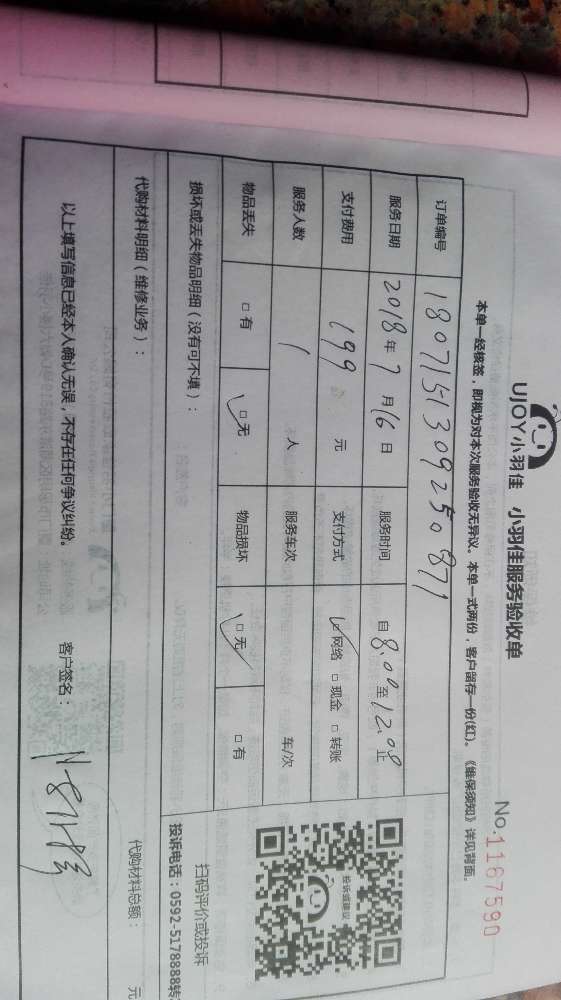 UJOY小羽佳 小羽佳服务验收单
No.1167590
本单一经核签，即视为对本次服务验收无异议。本单一式两份，客户留存一份(红)。《维保须知》详见背面。
订单编号 180715130925087 1
服务日期 2018年7月16日 服务时间 自8.00至12.00止
支付费用 199 元 支付方式 ☑网络 □现金 □转账
服务人数 1 人 服务车次 车/次
物品丢失 □有 ☑无 物品损坏 ☑无 □有
损坏或丢失物品明细（没有可不填）：
投诉或建议
扫码评价或投诉
投诉电话：0592-5178888转
代购材料明细（维修业务）：
代购材料总额： 元
以上填写信息已经本人确认无误，不存在任何争议纠纷。 客户签名：